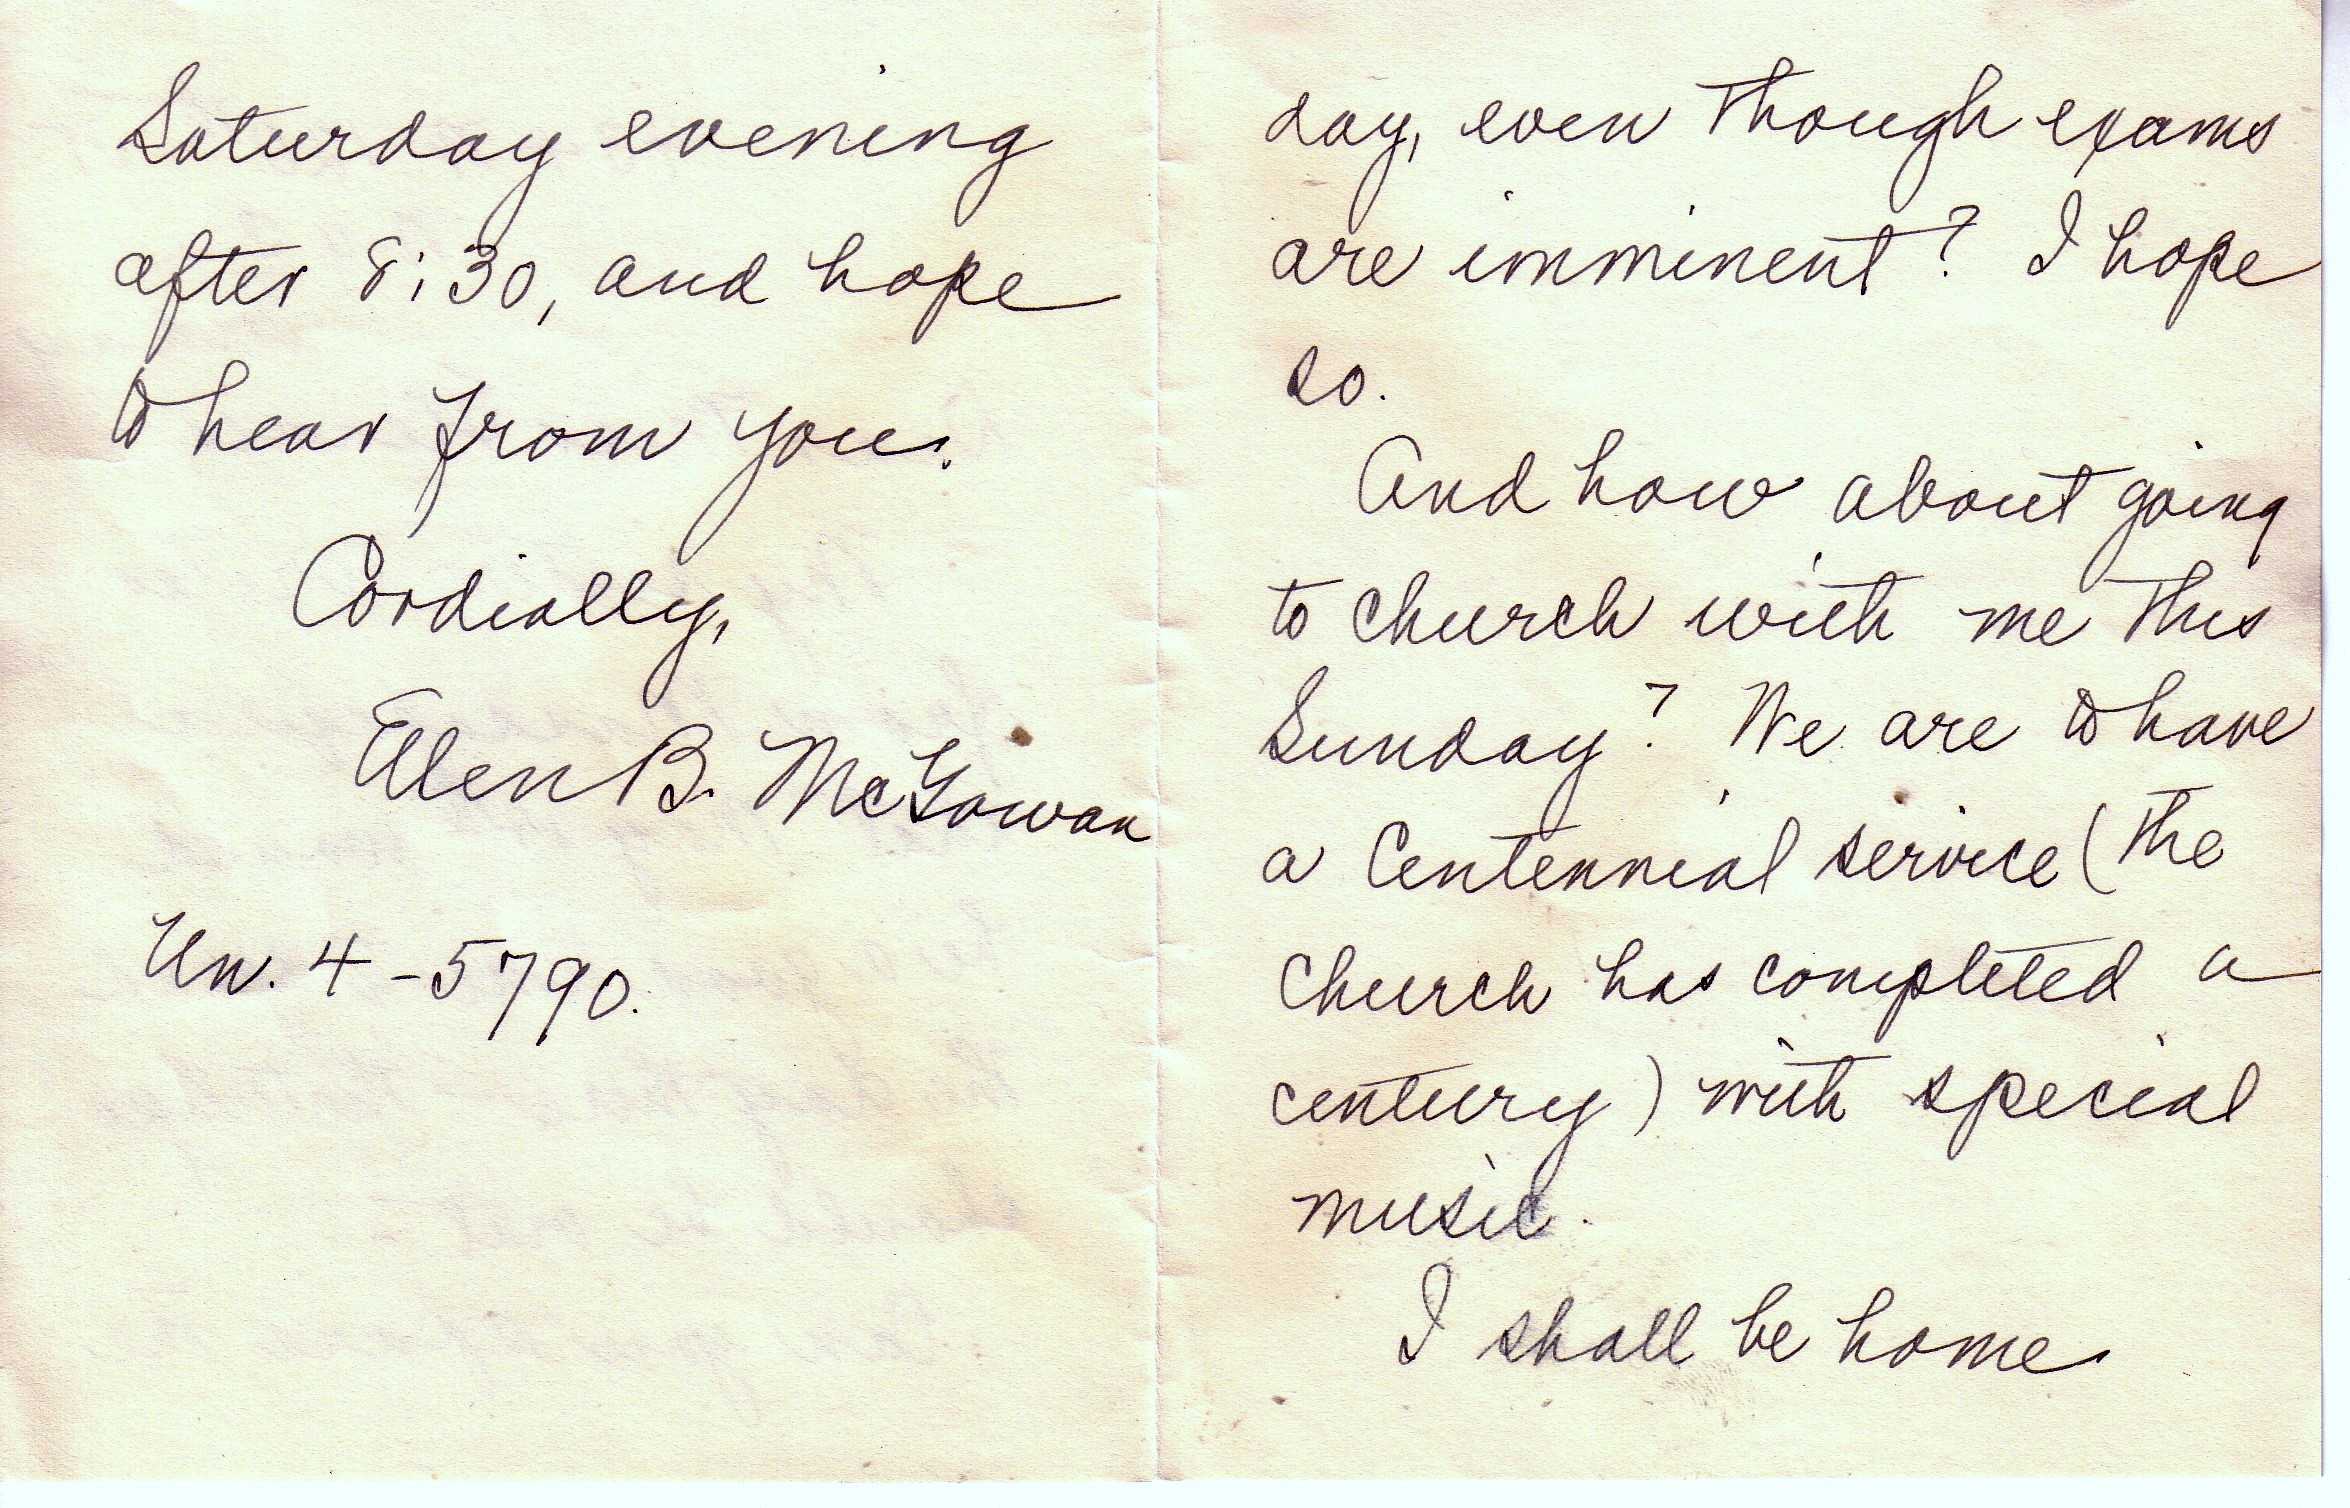 day, even though exams
are imminent? I hope
so.
And how about going
to church with me this
Sunday? We are to have
a Centennial service (the
church has completed a
century) with special
music.
I shall be home
Saturday evening
after 8:30, and hope
to hear from you.
Cordially,
Ellen B. McGowan
Un. 4-5790.